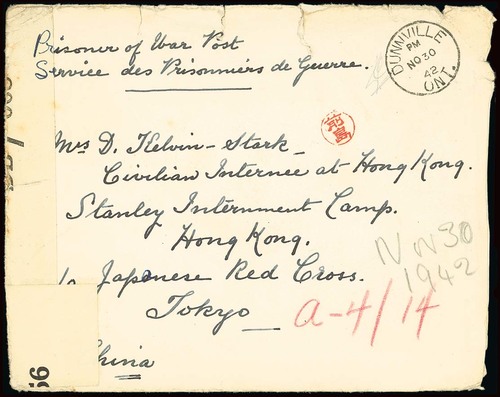 Prisoner of War Post
Service des Prisonniers de Guerre.
DUNNVILLE
PM
NO 30
42
ONT.
Mrs D. Kelvin-Stark
Civilian Internee at Hong Kong.
Stanley Internment Camp.
Hong Kong.
Japanese Red Cross.
Tokyo
China
Nov 30
1942
a-4/14
56